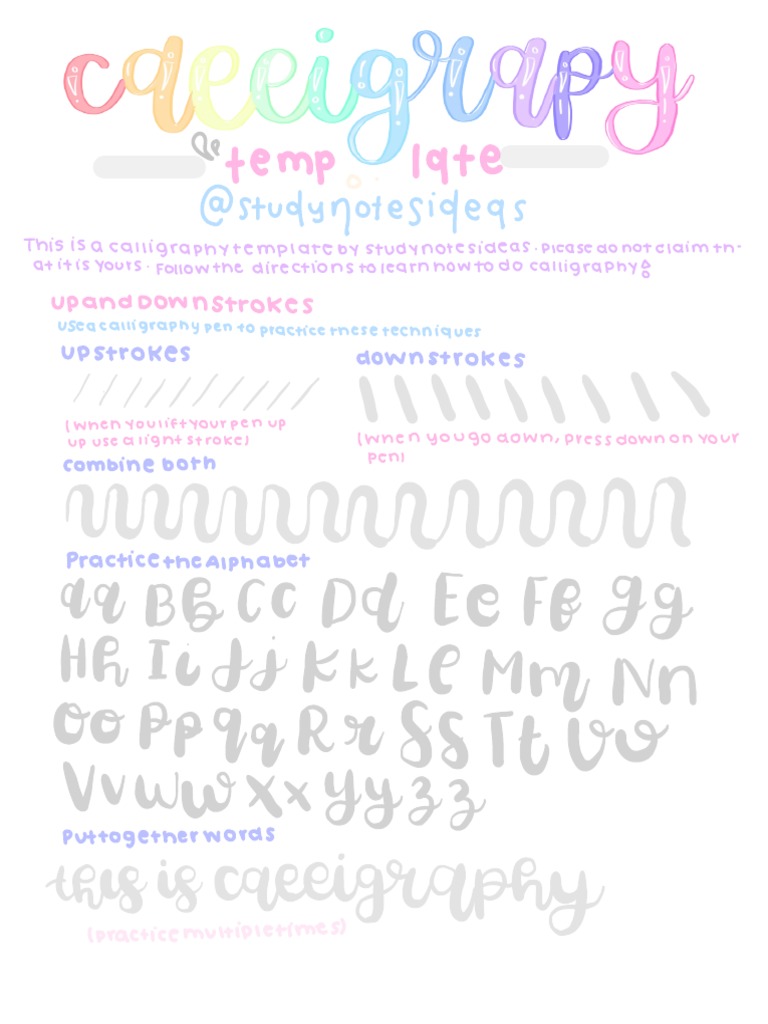 calligrapy
temp late
@studynotesideas
This is a calligraphy template by studynotesideas. Please do not claim th-
at it is yours. Follow the directions to learn how to do calligraphy!
up and down strokes
use a calligraphy pen to practice these techniques
upstrokes downstrokes
(when you lift your pen up
up use a light stroke)
(when you go down, press down on your
pen)
combine both
Practice the Alphabet
aa Bb Cc Dd Ee Ff gg
Hh Ii Jj Kk Ll Mm Nn
Oo Pp qq Rr Ss Tt Uu
Vv Ww Xx Yy Zz
Put together words
this is calligraphy
(practice multiple times)